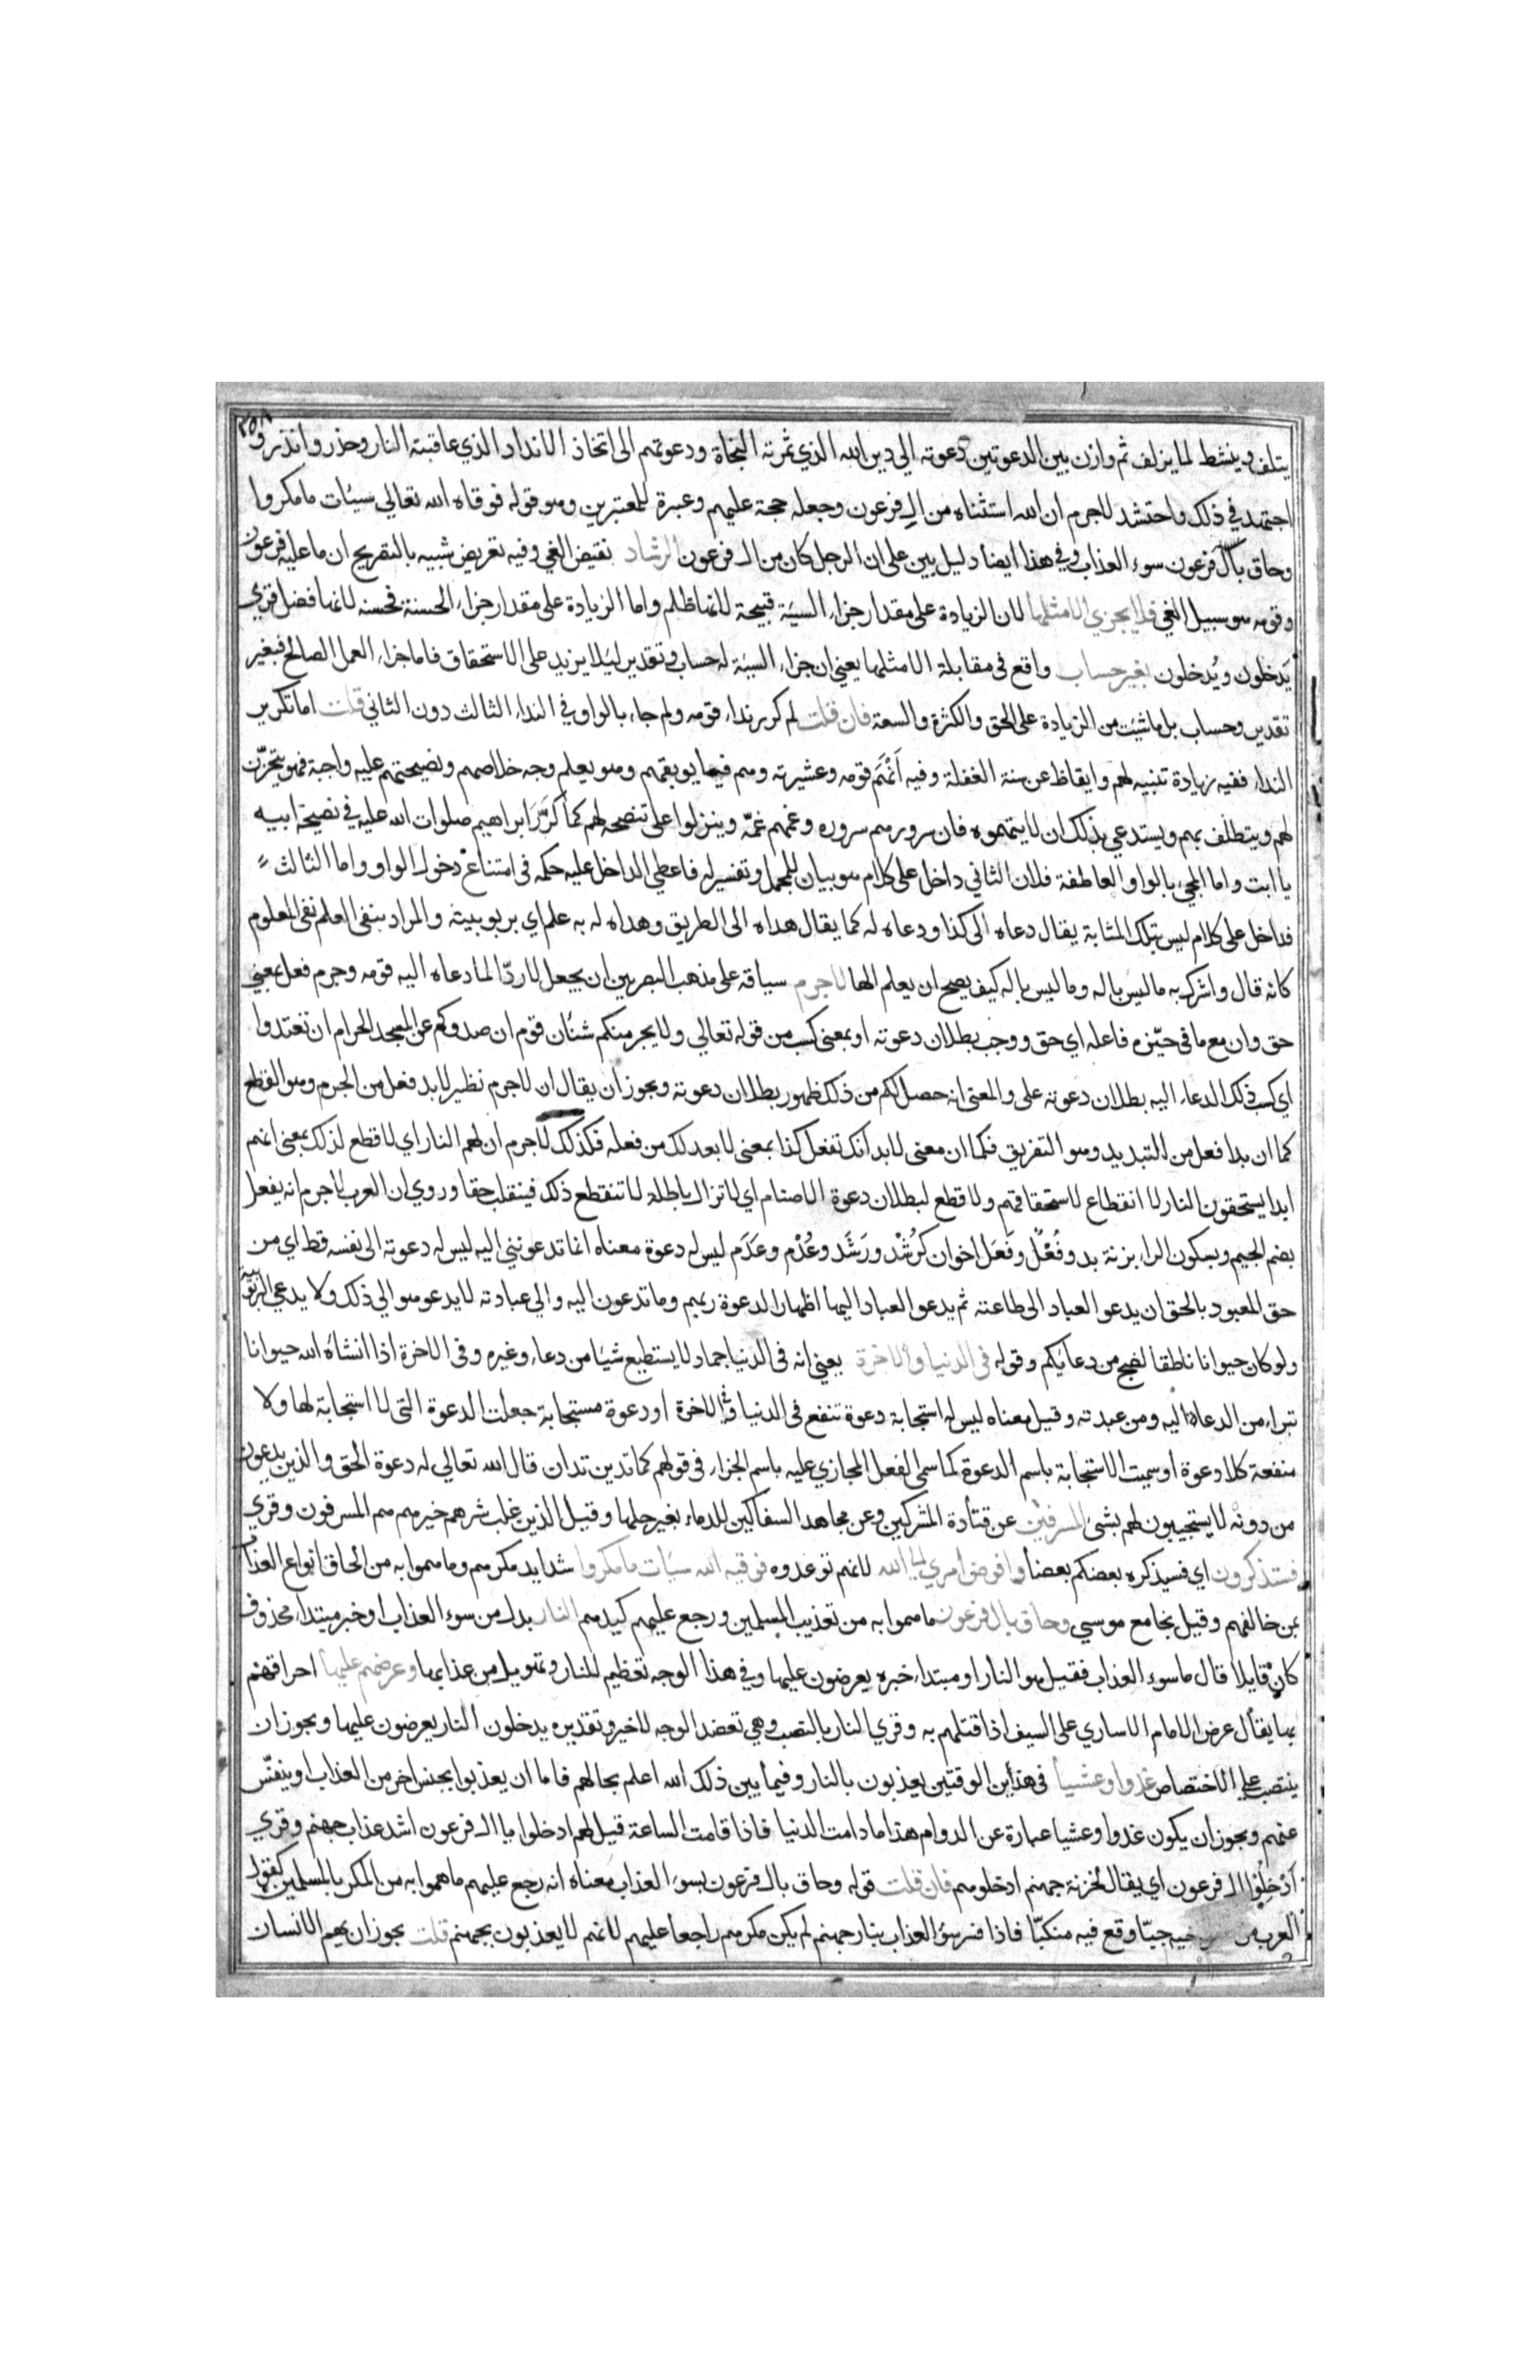 ٢٥٨
يتلف وينشط لما يزلف ثم وازن بين الدعوتين دعوته الي دين الله الذي ثمرته النجاة ودعوتهم الى اتخاذ الانداد الذي عاقبته النار وحذر وانذر و
اجتهد في ذلك واحتشد لاجرم ان الله استثناه من ال فرعون وجعله حجة عليهم وعبرة للمعتبرين وهو قوله فوقاه الله تعالي سيئات ما مكروا
وحاق بآل فرعون سوء العذاب وفي هذا ايضا دليل بين على ان الرجل كان من ال فرعون الرشاد نقيض الغي وفيه تعريض شبيه بالتصريح ان ما عليه فرعون
وقومه هو سبيل الغي فلا يجزي الا مثلها لان الزيادة على مقدار جزاء السيئة قبيحة لانها ظلم واما الزيادة على مقدار جزاء الحسنة فحسنه لانها فضل قري
يَدخلون ويُدخلون بغير حساب واقع في مقابلة الا مثلها يعني ان جزاء السيئة له حساب وتقدير لئلا يزيد على الاستحقاق فاما جزاء العمل الصالح فبغير
تقدير وحساب بل ما شئت من الزيادة على الحق والكثرة والسعة فان قلت لم كرر نداء قومه ولم جاء بالواو في النداء الثالث دون الثاني قلت اما تكرير
النداء ففيه زيادة تنبيه لهم وايقاظ عن سنة الغفلة وفيه اَنّهُم قومه وعشيرته وهم فيما يوبقهم وهو يعلم وجه خلاصهم ونصيحتهم عليه واجبة فهو يتحزّن
لهم ويتلطف بهم ويستدعي بذلك ان لا يتهموه فان سرورهم سروره وغمهم غمّه وينزلوا على تنصحه لهم كما كَرَّرَ ابراهيم صلوات الله عليه في نصيحة ابيه
يا ابت واما المجيء بالواو العاطفة فلان الثاني داخل على كلام هو بيان للمجمل وتفسير له فاعطي الداخل عليه حكمه في امتناع دخول الواو واما الثالث
فداخل على كلام ليس بتلك المثابة يقال دعاه الى كذا ودعاه له كما يقال هداه الى الطريق وهداه له به علم اي بربوبيته والمراد بنفى العلم نفى المعلوم
كانه قال واشرك به ما ليس باله وما ليس باله كيف يصح ان يعلم الها لاجرم سياقه على مذهب البصريين ان يجعل لا ردّا لما دعاه اليه قومه وجرم فعل بمعني
حق وان مع ما فى حيّزه فاعله اي حق ووجب بطلان دعوته او بمعنى كسب من قوله تعالي ولا يجرمنكم شنئان قوم ان صدوكم عن المسجد الحرام ان تعتدوا
اي كسب ذلك الدعاء اليه بطلان دعوته على والمعنى انه حصل لكم من ذلك ظهور بطلان دعوته ويجوز ان يقال ان لاجرم نظير لابد فعل من الجرم وهو القطع
كما ان بدا فعل من التبديد وهو التفريق فكما ان معنى لابد انك تفعل كذا بمعنى لا بعد لك من فعله فكذلك لاجرم ان لهم النار اي لا قطع لذلك بمعنى انهم
ابدا يستحقون النار لا انقطاع لاستحقاقهم ولا قطع لبطلان دعوة الاصنام اي لا تزال باطلة لا تنقطع ذلك فينقلب حقا وروي ان العرب لاجرم انه يفعل
بضم الجيم وسكون الراء بزنة بد وفُعْل وفَعَل اخوان كرُشْد ورَشَد وعُدْم وعَدَم ليس له دعوة معناه انما تدعونني اليه ليس له دعوة الى نفسه قط اي من
حق المعبود بالحق ان يدعو العباد الى طاعته ثم يدعو العباد اليها اظهارا لدعوة ربهم وما تدعون اليه والي عبادته لا يدعو هو الي ذلك ولا يدعي الربوبية
ولو كان حيوانا ناطقا لضج من دعائكم وقوله فى الدنيا والاخرة يعني انه فى الدنيا جماد لا يستطيع شيا من دعاء وغيره وفى الاخرة اذا انشاه الله حيوانا
تبراء من الدعاة اليه ومن عبدته وقيل معناه ليس له استجابة دعوة تنفع فى الدنيا وفي الاخرة او دعوة مستجابة جعلت الدعوة التى لا استجابة لها ولا
منفعة كلا دعوة او سميت الاستجابة باسم الدعوة كما سمى الفعل المجازي عليه باسم الجزاء فى قولهم كما تدين تدان قال الله تعالي له دعوة الحق والذين يدعون
من دونه لا يستجيبون لهم بشئ المسرفين عن قتادة المشركين وعن مجاهد السفاكين للدماء بغير حلها وقيل الذين غلب شرهم خيرهم هم المسرفون وقري
فستذكرون اي فسيذكره بعضكم بعضا وافوض امري الي الله لانهم توعدوه فوقيه الله سيات ما مكروا شدايد مكرهم وما هموا به من الحاق انواع العذاب
بمن خالفهم وقيل نجا مع موسي وحاق بال فرعون ما هموا به من تعذيب المسلمين ورجع عليهم كيدهم النار بدل من سوء العذاب او خبر مبتداء محذوف
كان قايلا قال ما سوء العذاب فقيل هو النار او مبتداء خبره يعرضون عليها وفي هذا الوجه تعظيم للنار وتهويل من عذابها وعرضهم عليها احراقهم
بها يقال عرض الامام الاساري على السيف اذا قتلهم به وقري النار بالنصب وهي تعضد الوجه الاخير وتقديره يدخلون النار يعرضون عليها ويجوز ان
ينتصب على الاختصاص غدوا وعشيا فى هذين الوقتين يعذبون بالنار وفيما بين ذلك الله اعلم بحالهم فاما ان يعذبوا بجنس اخر من العذاب او ينفّس
عنهم ويجوز ان يكون غدوا وعشيا عبارة عن الدوام هذا ما دامت الدنيا فاذا قامت الساعة قيل لهم ادخلوا يا ال فرعون اشد عذاب جهنم وقري
اَدْخِلُوا ال فرعون اي يقال لخزنة جهنم ادخلوهم فان قلت قوله وحاق بال فرعون بسوء العذاب معناه انه رجع عليهم ما هموا به من المكر بالمسلمين كقول
العرب من لاخيه جبّا وقع فيه منكبّا فاذا فسر سؤ العذاب بنار جهنم لم يكن مكرهم راجعا عليهم لانهم لا يعذبون بجهنم قلت يجوز ان يهم الانسان